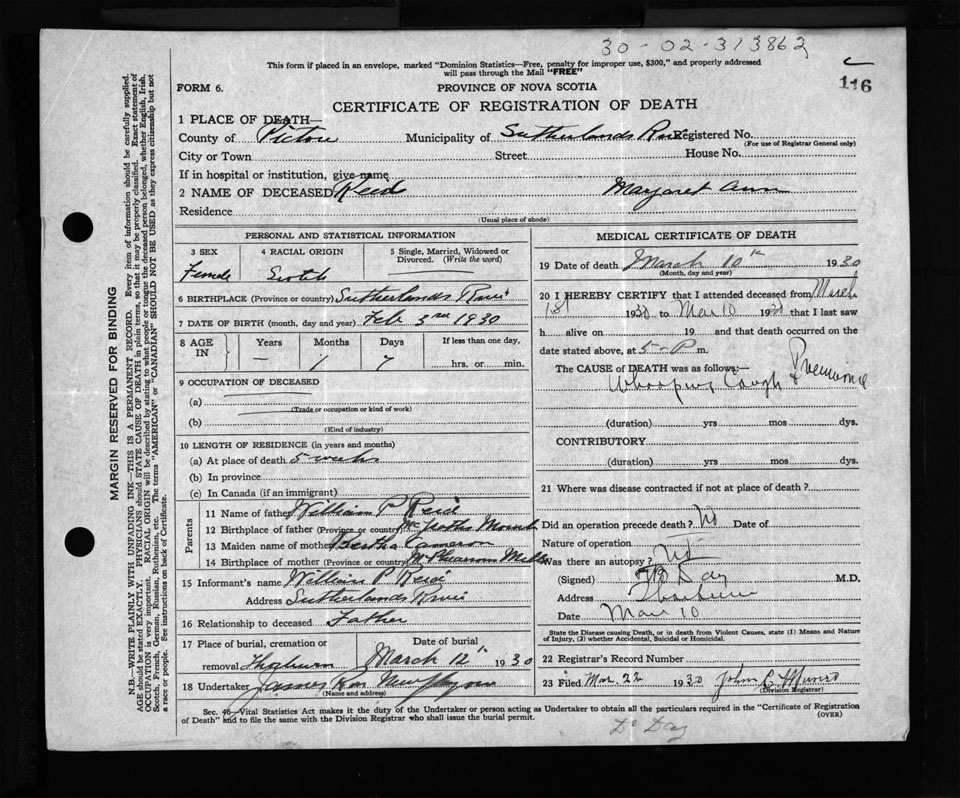 30-02-313862
116
This form if placed in an envelope, marked "Dominion Statistics—Free, penalty for improper use, $300," and properly addressed
will pass through the Mail "FREE"
FORM 6.
PROVINCE OF NOVA SCOTIA
CERTIFICATE OF REGISTRATION OF DEATH
1 PLACE OF DEATH—
County of Pictou Municipality of Sutherlands River Registered No.
(For use of Registrar General only)
City or Town Street House No.
If in hospital or institution, give name
2 NAME OF DECEASED Reid Margaret Ann
Residence
(Usual place of abode)
PERSONAL AND STATISTICAL INFORMATION
3 SEX 4 RACIAL ORIGIN 5 Single, Married, Widowed or
Divorced. (Write the word)
Female Scotch
6 BIRTHPLACE (Province or country) Sutherlands River
7 DATE OF BIRTH (month, day and year) Feb 3rd 1930
8 AGE IN Years Months Days If less than one day,
— 1 7 hrs. or min.
9 OCCUPATION OF DECEASED
(a)
(Trade or occupation or kind of work)
(b)
(Kind of industry)
10 LENGTH OF RESIDENCE (in years and months)
(a) At place of death 5 weeks
(b) In province
(c) In Canada (if an immigrant)
Parents
11 Name of father William P Reid
12 Birthplace of father (Province or country)
13 Maiden name of mother Bertha Cameron
14 Birthplace of mother (Province or country) Mills
15 Informant's name William P Reid
Address Sutherlands River
16 Relationship to deceased Father
17 Place of burial, cremation or Date of burial
removal Thorburn March 12th 1930
18 Undertaker James
(Name and address)
MEDICAL CERTIFICATE OF DEATH
19 Date of death March 10th 1930
(Month, day and year)
20 I HEREBY CERTIFY that I attended deceased from March
1st 1930 to Mar 10 1930 that I last saw
h alive on 19 and that death occurred on the
date stated above, at 5-P m.
The CAUSE of DEATH was as follows:—
Whooping Cough & Pneumonia
(duration) yrs mos dys.
CONTRIBUTORY
(duration) yrs mos dys.
21 Where was disease contracted if not at place of death?
Did an operation precede death? No Date of
Nature of operation
Was there an autopsy? No
(Signed) Day M.D.
Address Thorburn
Date Mar 10
State the Disease causing Death, or in death from Violent Causes, state (1) Means and Nature
of Injury, (2) whether Accidental, Suicidal or Homicidal.
22 Registrar's Record Number
23 Filed Mar. 22 1930 John Munro
(Division Registrar)
Sec. 46—Vital Statistics Act makes it the duty of the Undertaker or person acting as Undertaker to obtain all the particulars required in the "Certificate of Registration
of Death" and to file the same with the Division Registrar who shall issue the burial permit.
(OVER)
Dr Day
MARGIN RESERVED FOR BINDING
N.B.—WRITE PLAINLY WITH UNFADING INK—THIS IS A PERMANENT RECORD. Every item of information should be carefully supplied.
AGE should be stated EXACTLY. PHYSICIANS should STATE CAUSE OF DEATH in plain terms, so that it may be properly classified. Exact statement of
OCCUPATION is very important. RACIAL ORIGIN will be described by stating to what people or tongue the deceased person belonged, whether English, Irish,
Scotch, French, German, Russian, Ruthenian, etc. The terms "AMERICAN" or "CANADIAN" SHOULD NOT BE USED as they express citizenship but not
a race or people. See instructions on back of Certificate.